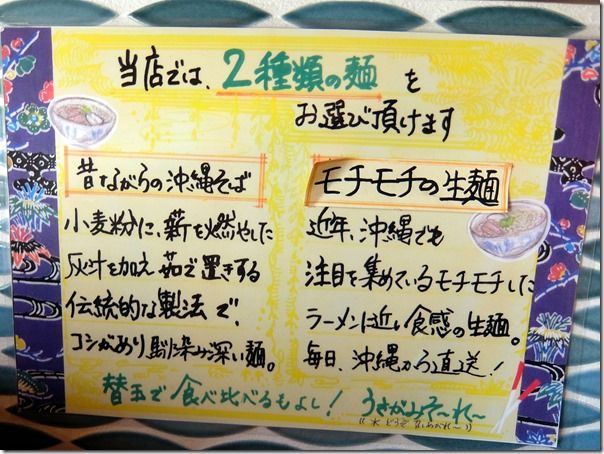 当店では、2種類の麺を
お選び頂けます
昔ながらの沖縄そば
小麦粉に、薪を燃やした
灰汁を加え茹で置きする
伝統的な製法で、
コシがあり馴染み深い麺。
モチモチの生麺
近年、沖縄でも
注目を集めているモチモチした
ラーメンに近い食感の生麺。
毎日、沖縄から直送!
替玉で食べ比べるもよし!
うさがみそ〜れ〜